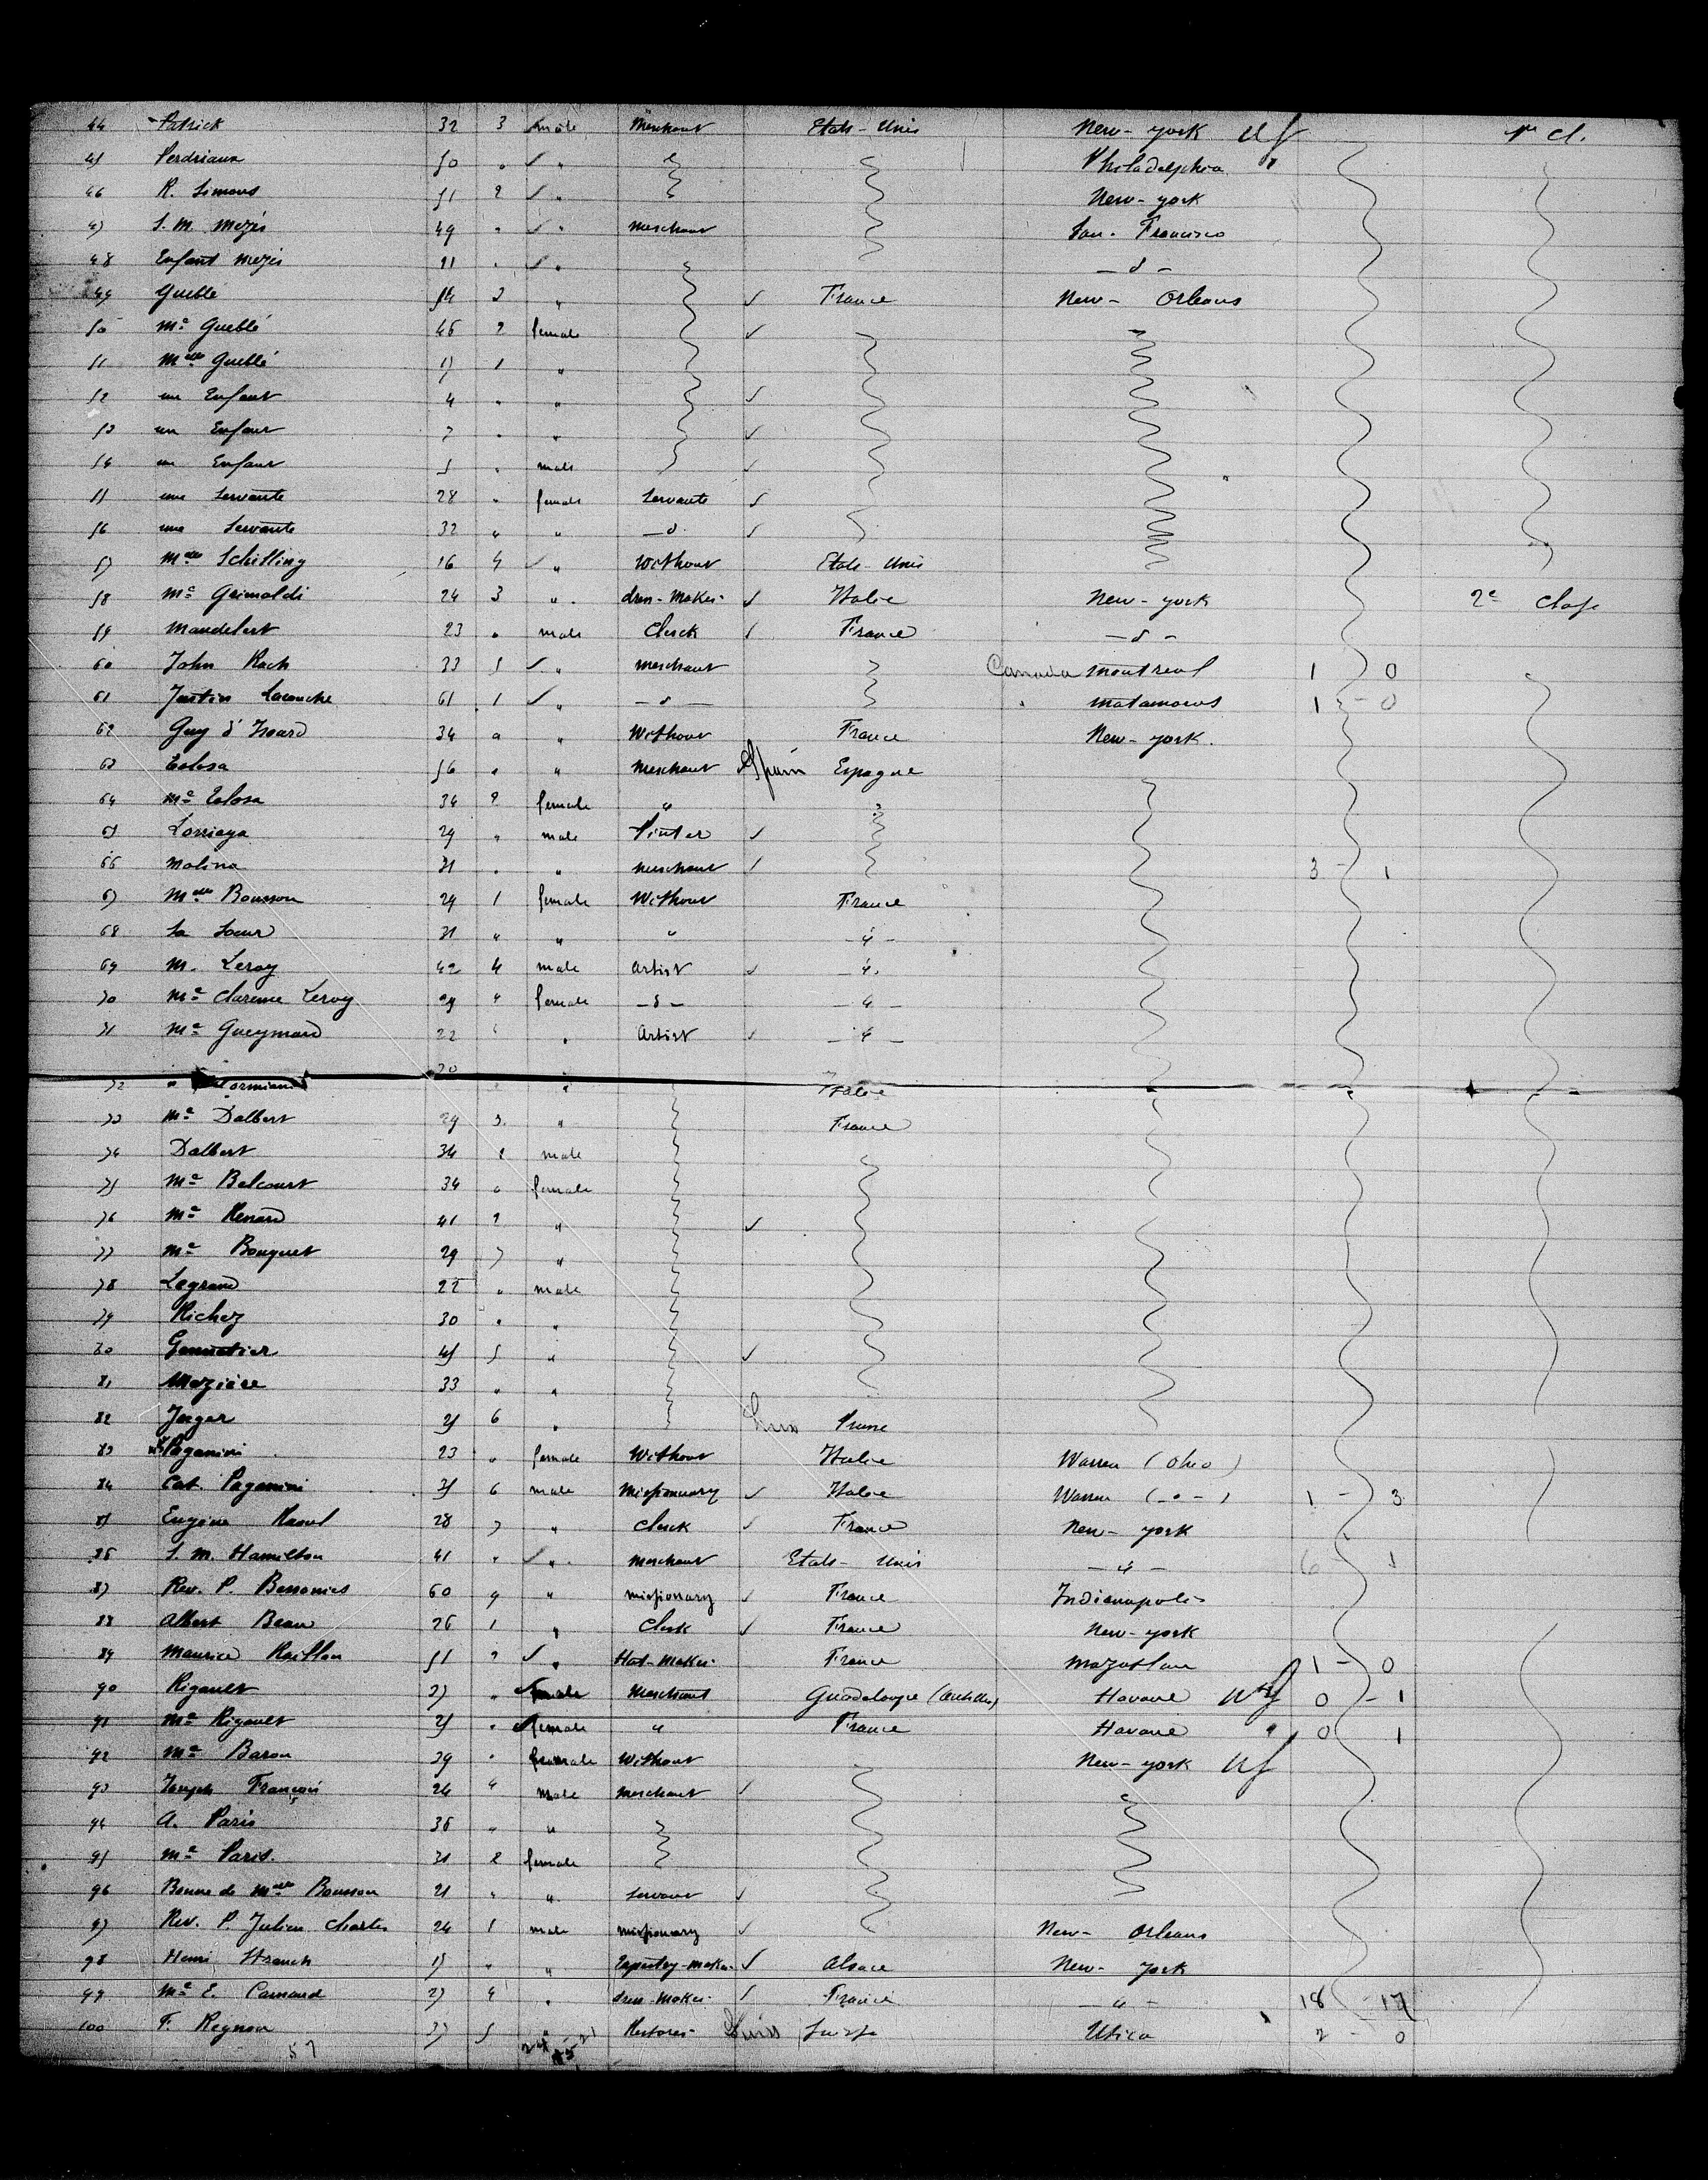 44 Patrick 32 3 male Merchant Etats-Unis New-york 1re Cl.
45 Perdriaux 50 " " Philadelphia
46 R. Simons 51 2 " New-york
47 S. M. Mezis 49 " " merchant San-Francisco
48 Enfant Mezis 21 " " —d—
49 Gueblé " France New-Orleans
50 Me Gueblé 45 2 female
51 Melle Gueblé 17 1 "
52 un Enfant 4 " "
53 un Enfant 7 " "
54 un Enfant 5 " male
55 une Servante 28 " female Servante
56 une Servante 32 " " —d—
57 Melle Schilling 16 4 " Without Etats-Unis
58 Me Grimaldi 24 3 " dress-maker Italie New-york 2e Classe
59 Mandelert 23 " male Clerck France —d—
60 John Rach 33 5 " merchant Canada Montreal 1 0
61 Justin 61 1 " —d— Matamoros 1 - 0
62 Guy d'Isoard 34 " " Without France New-york.
63 Eolosa 56 " " Merchant Spain Espagne
64 Me Eolosa 34 2 female "
65 Lorriaga 29 " male
66 Molina 31 " " merchant 3 - 1
67 Melle Bousson 29 1 female Without France
68 Sa Soeur 31 " " " — " —
69 M. Leroy 42 4 male Artist — " —
70 Me Clarence Leroy " female —d— — " —
71 Me Gueymard 22 " " Artist — " —
72 " 20 " Italie
73 Me Dalbert 29 3 " France
74 Dalbert 34 2 male
75 Me Belcourt 34 " female
76 Me Renard 41 2 "
77 Me Bouquet 29 7 "
78 Legrand 25 " male
79 Richez 30 " "
80 45 5 "
81 Mezière 33 " "
82 Jaeger 25 6 "
83 Paganini 23 " female Without Italie Warren (Ohio)
84 Cat. Paganini 35 6 male Missionnary Italie Warren (-"-) 1 - 3
85 Eugène Raoul 28 7 " Clerck France New-york
86 S. M. Hamilton 41 " " Merchant Etats-Unis — " — 6 1
87 Rev. P. Bessonies 60 9 " missionary France Indianapolis
88 Albert Beau 26 1 " Clerk France New-york
89 Maurice Raillon 51 2 " Hat-Maker France Mazatlan 1 - 0
90 Rigault 27 " male Merchant Guadeloupe (Antilles) Havane 0 - 1
91 Me Rigault 25 " female " France Havane " 0 1
92 Me Baron 39 " female Without New-york
93 Joseph François 24 4 male Merchant
94 A. Paris 36 " "
95 Me Paris. 31 2 female
96 Bonne de Melle Bousson 21 " " Servant
97 Rev. P. Julien Charles 24 1 male missionary New-Orleans
98 Henri 17 " " Tapestry-maker Alsace New-York
99 Me E. Camaud 27 4 " dress-maker France — " — 18 - 17
100 F. Reynon 37 5 Suiss Suisse Utica 2 - 0
57 24 21